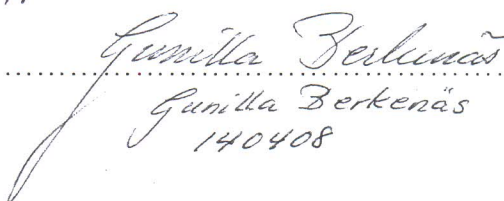 Gunilla Berkenäs
Gunilla Berkenäs
140408